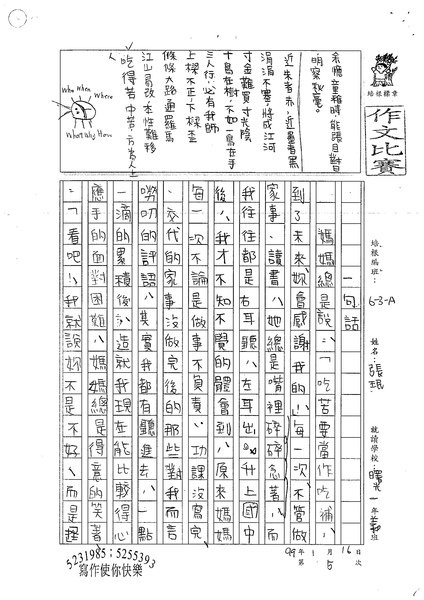 作文比賽
培根班班: 6-3-A
姓名: 張珉
就讀學校: 曙光一年義班
99年1月16日
第5次
余憶童稚時能張目對日
明察秋毫。
近朱者赤,近墨者黑
涓涓不塞,將成江河
寸金難買寸光陰
十鳥在樹,不如一鳥在手
三人行,必有我師
上樑不正,下樑歪
條條大路通羅馬
江山易改,本性難移
吃得苦中苦,方為人上人
Who When Where
What Why How
一句話
媽媽總是說:「吃苦要當作吃補,
到了未來妳會感謝我的」,每一次不管做
家事、讀書,她總是嘴裡碎碎念著,而
我往往都是右耳聽,左耳出。升上國中
後,我才不知不覺的體會到,原來媽媽
每一次不論是做事不負責,功課沒寫完
、交代的家事沒做完後的那些對我而言
嘮叨的評語,其實我都有聽進去,一點
一滴的累積後,造就我現在能比較得心
應手的面對困難,媽媽總是得意的笑著
:「看吧!我就說妳不是不好,而是
5231985;5255393
寫作使你快樂